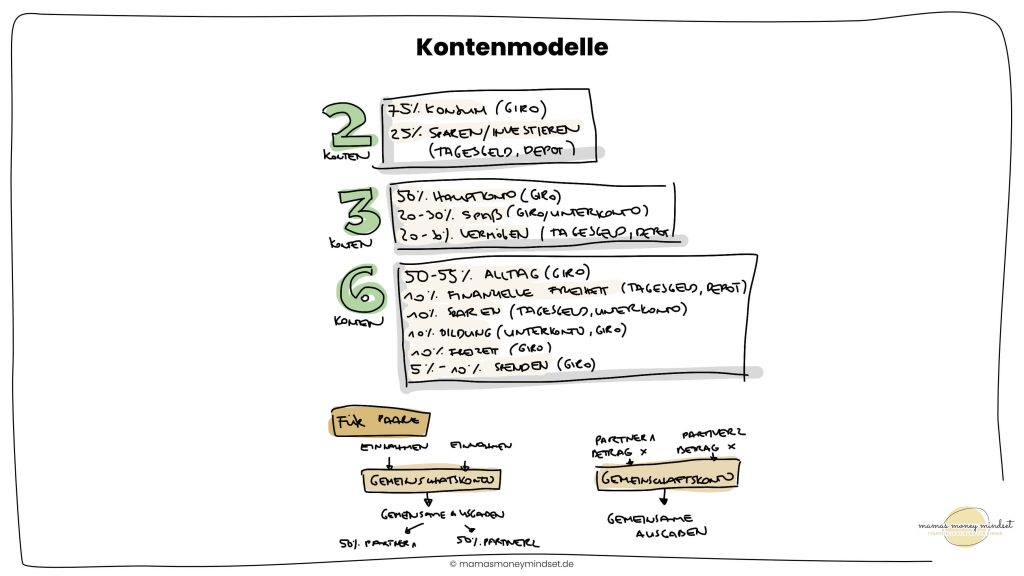 Kontenmodelle
2 KONTEN
75% KONSUM (GIRO)
25% SPAREN/INVESTIEREN
(TAGESGELD, DEPOT)
3 KONTEN
50% HAUPTKONTO (GIRO)
20-30% SPAß (GIRO/UNTERKONTO)
20-30% VERMÖGEN (TAGESGELD, DEPOT)
6 KONTEN
50-55% ALLTAG (GIRO)
10% FINANZIELLE FREIHEIT (TAGESGELD, DEPOT)
10% SPAREN (TAGESGELD, UNTERKONTO)
10% BILDUNG (UNTERKONTO, GIRO)
10% FREIZEIT (GIRO)
5% - 10% SPENDEN (GIRO)
FÜR PAARE
EINNAHMEN EINNAHMEN
GEMEINSCHAFTSKONTO
GEMEINSAME AUSGABEN
50% PARTNER 1 50% PARTNER 2
PARTNER 1 PARTNER 2
BETRAG X BETRAG X
GEMEINSCHAFTSKONTO
GEMEINSAME
AUSGABEN
mamas money mindset
© mamasmoneymindset.de